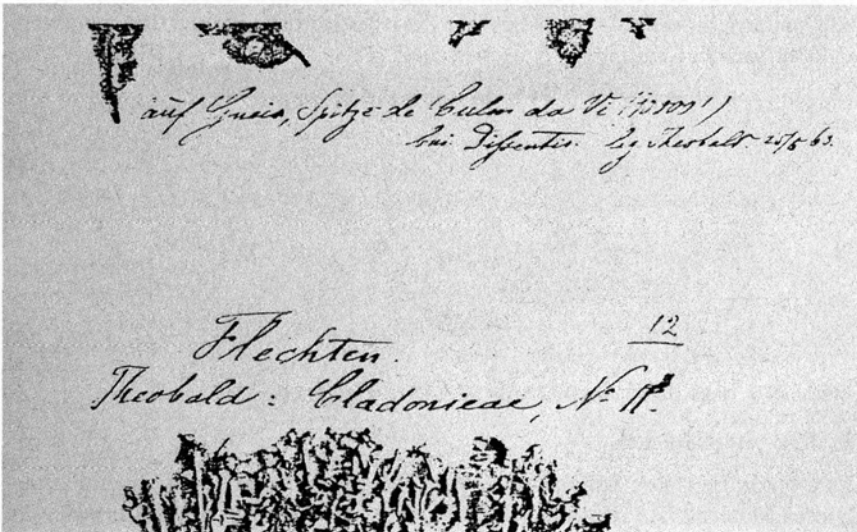 auf Gneis, Spitze de Culm da Vi
bei Dissentis. leg. Theobald. 25/8 63.
12
Flechten.
Theobald: Cladonieae, No